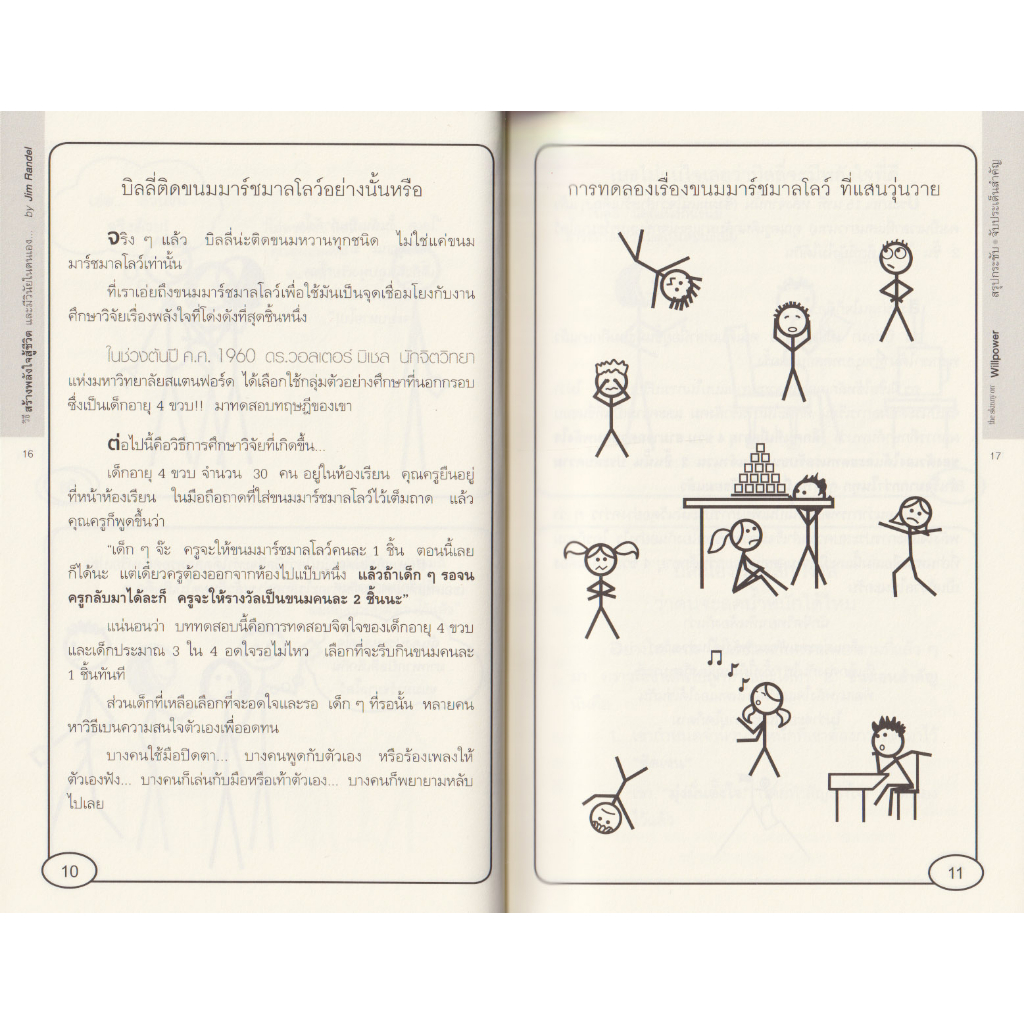 วิธี สร้างพลังใจสู้ชีวิต และมีวินัยในตนเอง... by Jim Randel
16
บิลลี่ติดขนมมาร์ชมาลโลว์อย่างนั้นหรือ
จริง ๆ แล้ว บิลลี่น่ะติดขนมหวานทุกชนิด ไม่ใช่แค่ขนม
มาร์ชมาลโลว์เท่านั้น
ที่เราเอ่ยถึงขนมมาร์ชมาลโลว์เพื่อใช้มันเป็นจุดเชื่อมโยงกับงาน
ศึกษาวิจัยเรื่องพลังใจที่โด่งดังที่สุดชิ้นหนึ่ง
ในช่วงต้นปี ค.ศ. 1960 ดร.วอลเตอร์ มิเชล นักจิตวิทยา
แห่งมหาวิทยาลัยสแตนฟอร์ด ได้เลือกใช้กลุ่มตัวอย่างศึกษาที่นอกกรอบ
ซึ่งเป็นเด็กอายุ 4 ขวบ!! มาทดสอบทฤษฎีของเขา
ต่อไปนี้คือวิธีการศึกษาวิจัยที่เกิดขึ้น...
เด็กอายุ 4 ขวบ จำนวน 30 คน อยู่ในห้องเรียน คุณครูยืนอยู่
ที่หน้าห้องเรียน ในมือถือถาดที่ใส่ขนมมาร์ชมาลโลว์ไว้เต็มถาด แล้ว
คุณครูก็พูดขึ้นว่า
"เด็ก ๆ จ๊ะ ครูจะให้ขนมมาร์ชมาลโลว์คนละ 1 ชิ้น ตอนนี้เลย
ก็ได้นะ แต่เดี๋ยวครูต้องออกจากห้องไปแป๊บหนึ่ง แล้วถ้าเด็ก ๆ รอจน
ครูกลับมาได้ละก็ ครูจะให้รางวัลเป็นขนมคนละ 2 ชิ้นนะ"
แน่นอนว่า บททดสอบนี้คือการทดสอบจิตใจของเด็กอายุ 4 ขวบ
และเด็กประมาณ 3 ใน 4 อดใจรอไม่ไหว เลือกที่จะรีบกินขนมคนละ
1 ชิ้นทันที
ส่วนเด็กที่เหลือเลือกที่จะอดใจและรอ เด็ก ๆ ที่รอนั้น หลายคน
หาวิธีเบนความสนใจตัวเองเพื่ออดทน
บางคนใช้มือปิดตา... บางคนพูดกับตัวเอง หรือร้องเพลงให้
ตัวเองฟัง... บางคนก็เล่นกับมือหรือเท้าตัวเอง... บางคนก็พยายามหลับ
ไปเลย
10
การทดลองเรื่องขนมมาร์ชมาลโลว์ ที่แสนวุ่นวาย
11
the skinny on Willpower สรุปกระชับ • จับประเด็นสำคัญ
17